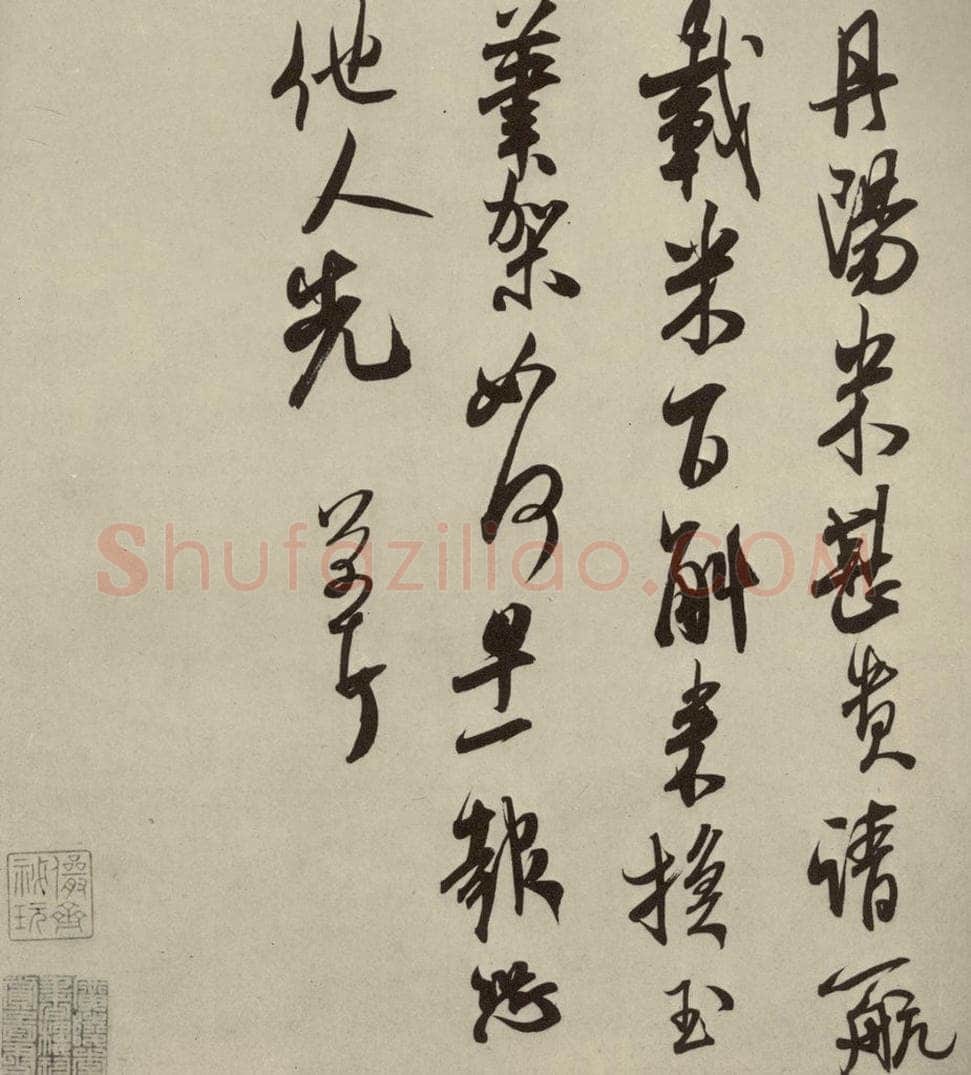 丹陽米甚貴請一航
載米百斛來換玉
筆架如何早一報恐
他人先
儼齋
祕玩
Shufaziliao.COM